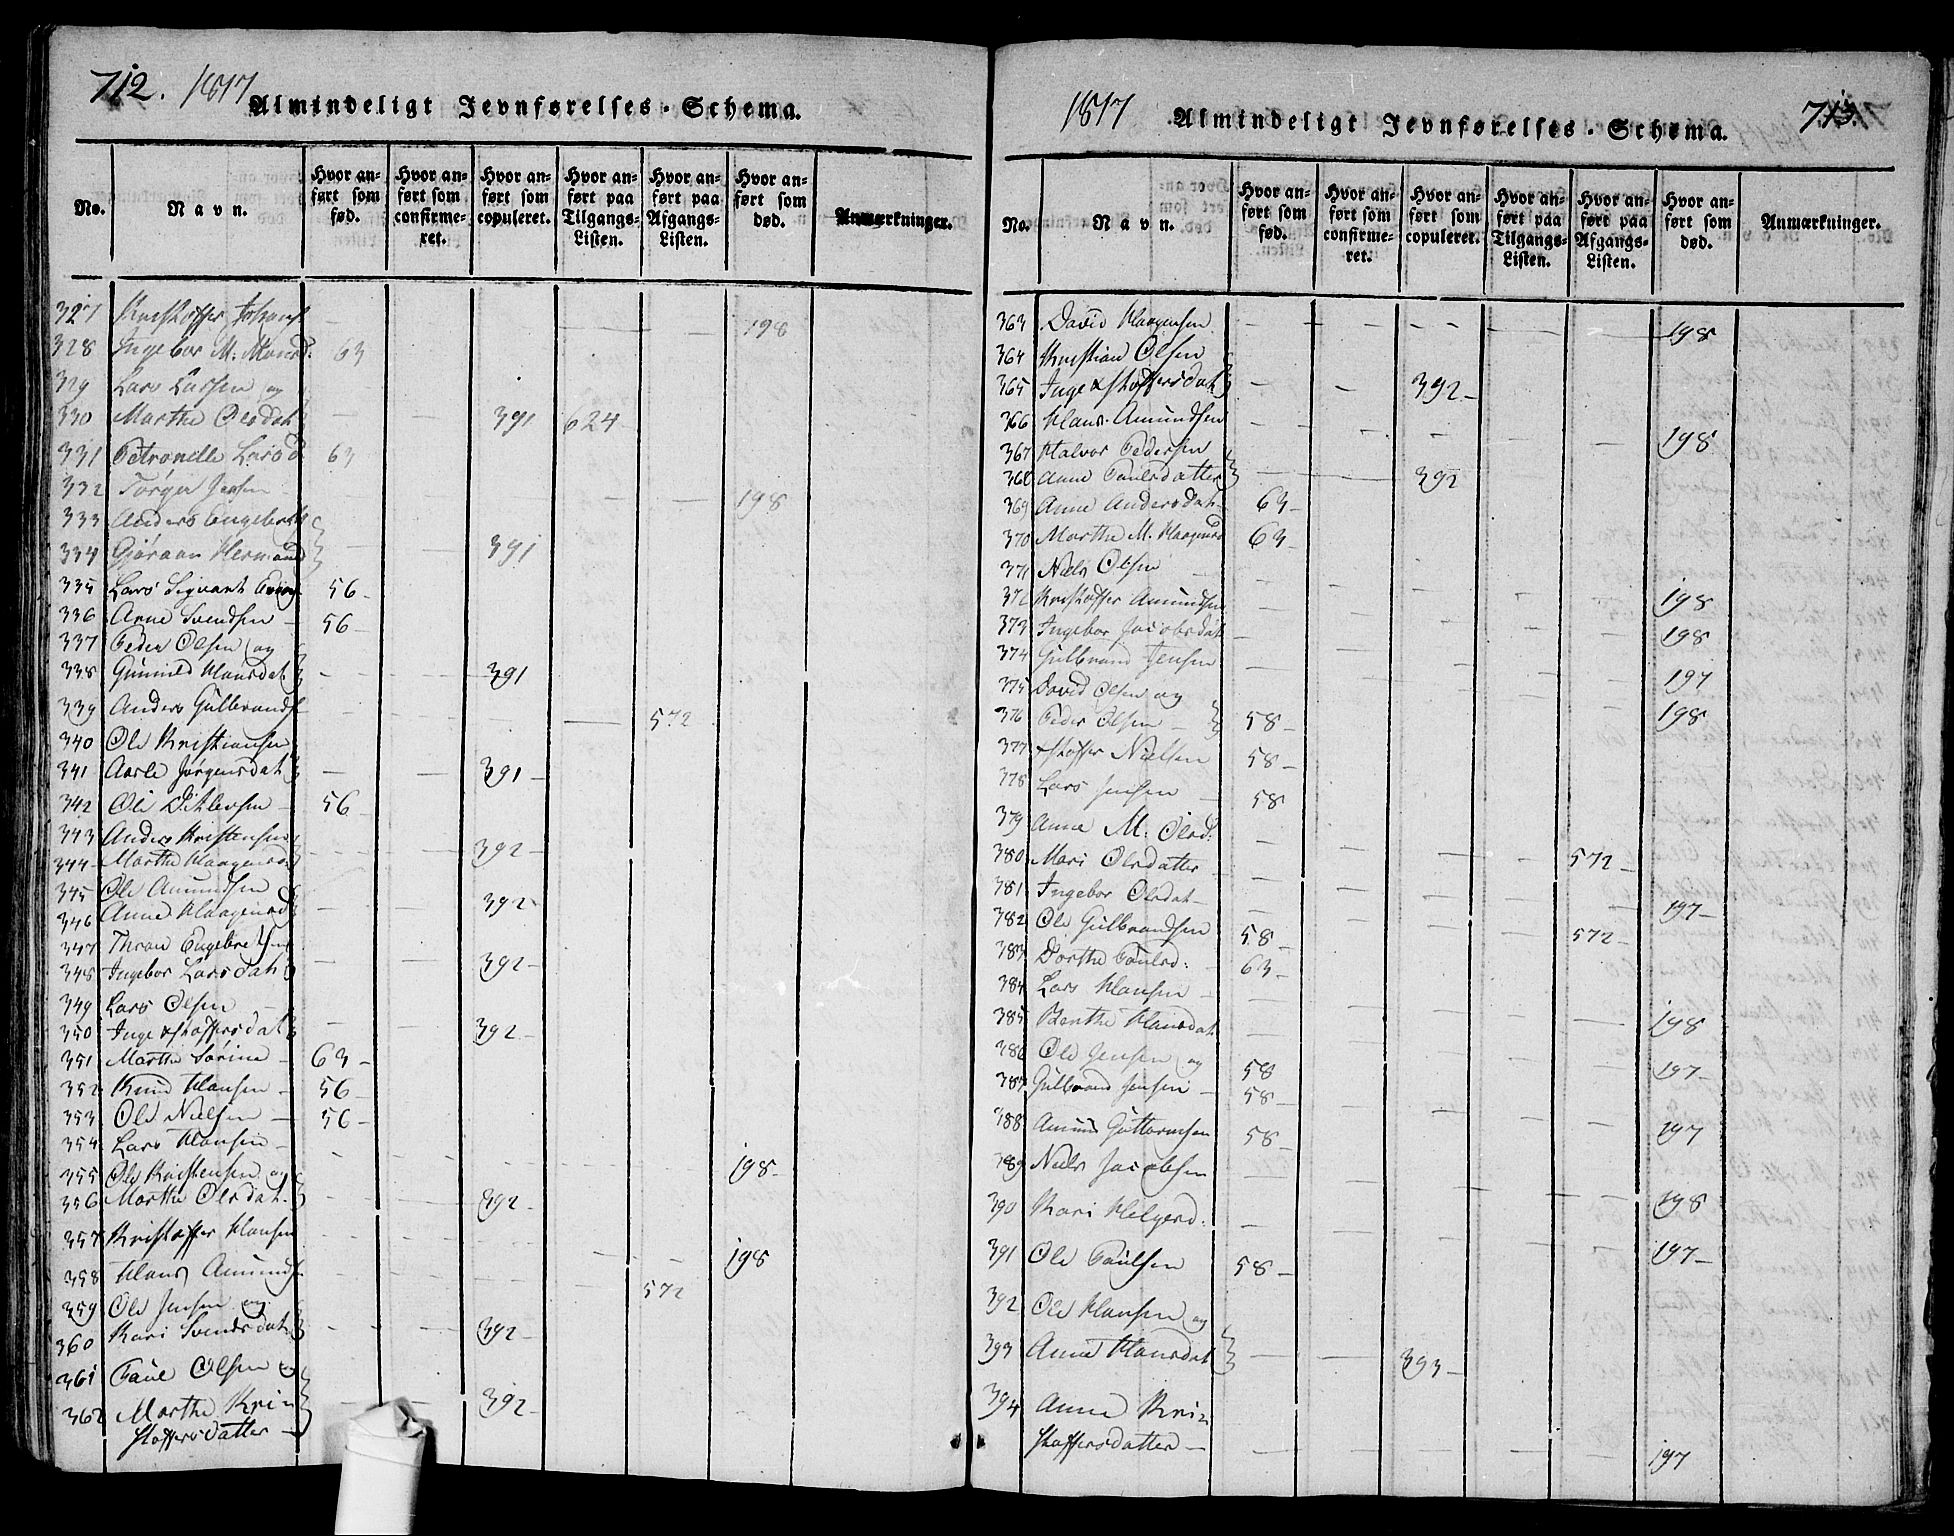 712. 1817
Almindeligt Jevnførelses-Schema.
No.
Navn.
Hvor anført som fød.
Hvor anført som confirmeret.
Hvor anført som copuleret.
Hvor anført paa Tilgangs-Listen.
Hvor anført paa Afgangs-Listen.
Hvor anført som død.
Anmærkninger.
327 Kristoffer Johans 198
328 Ingebor M. Monsd. 63
329 Lars Larsen og
330 Marthe Olsdat 391 624
331 Petronelle Larsd 63
332 Torger Jensen 198
333 Anders Engebrets
334 Gjøraan Hermand 391
335 Lars Sigvart 56
336 Arne Svendsen 56
337 Peder Olsen og
338 Gunnild Hansdat 391
339 Anders Gulbrands 572
340 Ole Kristiansen
341 Aasle Jørgensdat 391
342 Ole Ditlevsen 56
343 Anders Kristensen
344 Marthe Haagensd 392
345 Ole Amundsen
346 Anne Haagensd 392
347 Thron Engebretsen
348 Ingebor Larsdat 392
349 Lars Olsen
350 Inge xstoffersdat 392
351 Marthe Sørine 63
352 Knud Hansen 56
353 Ole Nielsen 56
354 Lars Hansen 198
355 Ole Kristensen og
356 Marthe Olsdat. 392
357 Kristoffer Hansen 198
358 Hans Amunds 572
359 Ole Jensen og
360 Kari Svendsdat 392
361 Paul Olsen og
362 Marthe Kri
stoffersdatter 392
1817
Almindeligt Jevnførelses-Schema.
713.
No.
Navn.
Hvor anført som fød.
Hvor anført som confirmeret.
Hvor anført som copuleret.
Hvor anført paa Tilgangs-Listen.
Hvor anført paa Afgangs-Listen.
Hvor anført som død.
Anmærkninger.
363 David Haagensen 198
364 Kristian Olsen
365 Inge xstoffersdat 392
366 Hans Amundsen 198
367 Halvor Pedersen
368 Anne Paulsdatter 392
369 Anne Andersdat 63
370 Marthe M. Haagensd 63
371 Niels Olsen 198
372 Kristoffer Amundsen 198
373 Ingebor Jacobsdat 197
374 Gulbrand Jensen 198
375 David Olsen og
376 Peder Olsen 58
377 xstoffer Nielsen 58
378 Lars Jensen 58
379 Anne M. Olsd. 572
380 Mari Olsdatter 197
381 Ingebor Olsdat 572
382 Ole Gulbrandsen 58
383 Dorthe Paulsd. 63
384 Lars Hansen 198
385 Berthe Hansdat 197
386 Ole Jensen og 58
387 Gulbrand Jensen 58 197
388 Amund Guttormsen 58
389 Niels Jacobsen 198
390 Kari Helgersd. 197
391 Ole Paulsen 58
392 Ole Hansen og
393 Anne Hansdat 393
394 Anne Kri
stoffersdatter 197